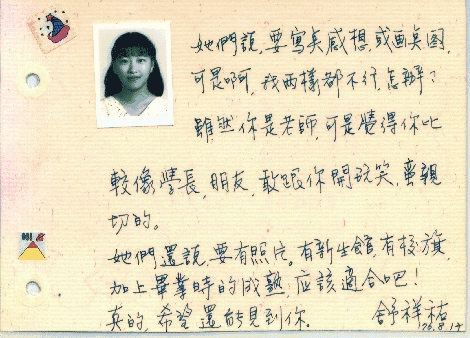 她們說，要寫些感想，或画些图，
可是啊，我两樣都不行，怎辦？
雖然你是老師，可是覺得你比
較像學長，朋友，敢跟你開玩笑，蠻親
切的。
她們還說，要有照片。有新生館，有校旗，
加上畢業時的成熟，应該適合吧！
真的，希望還能見到你。 舒祥祐
76.8.14